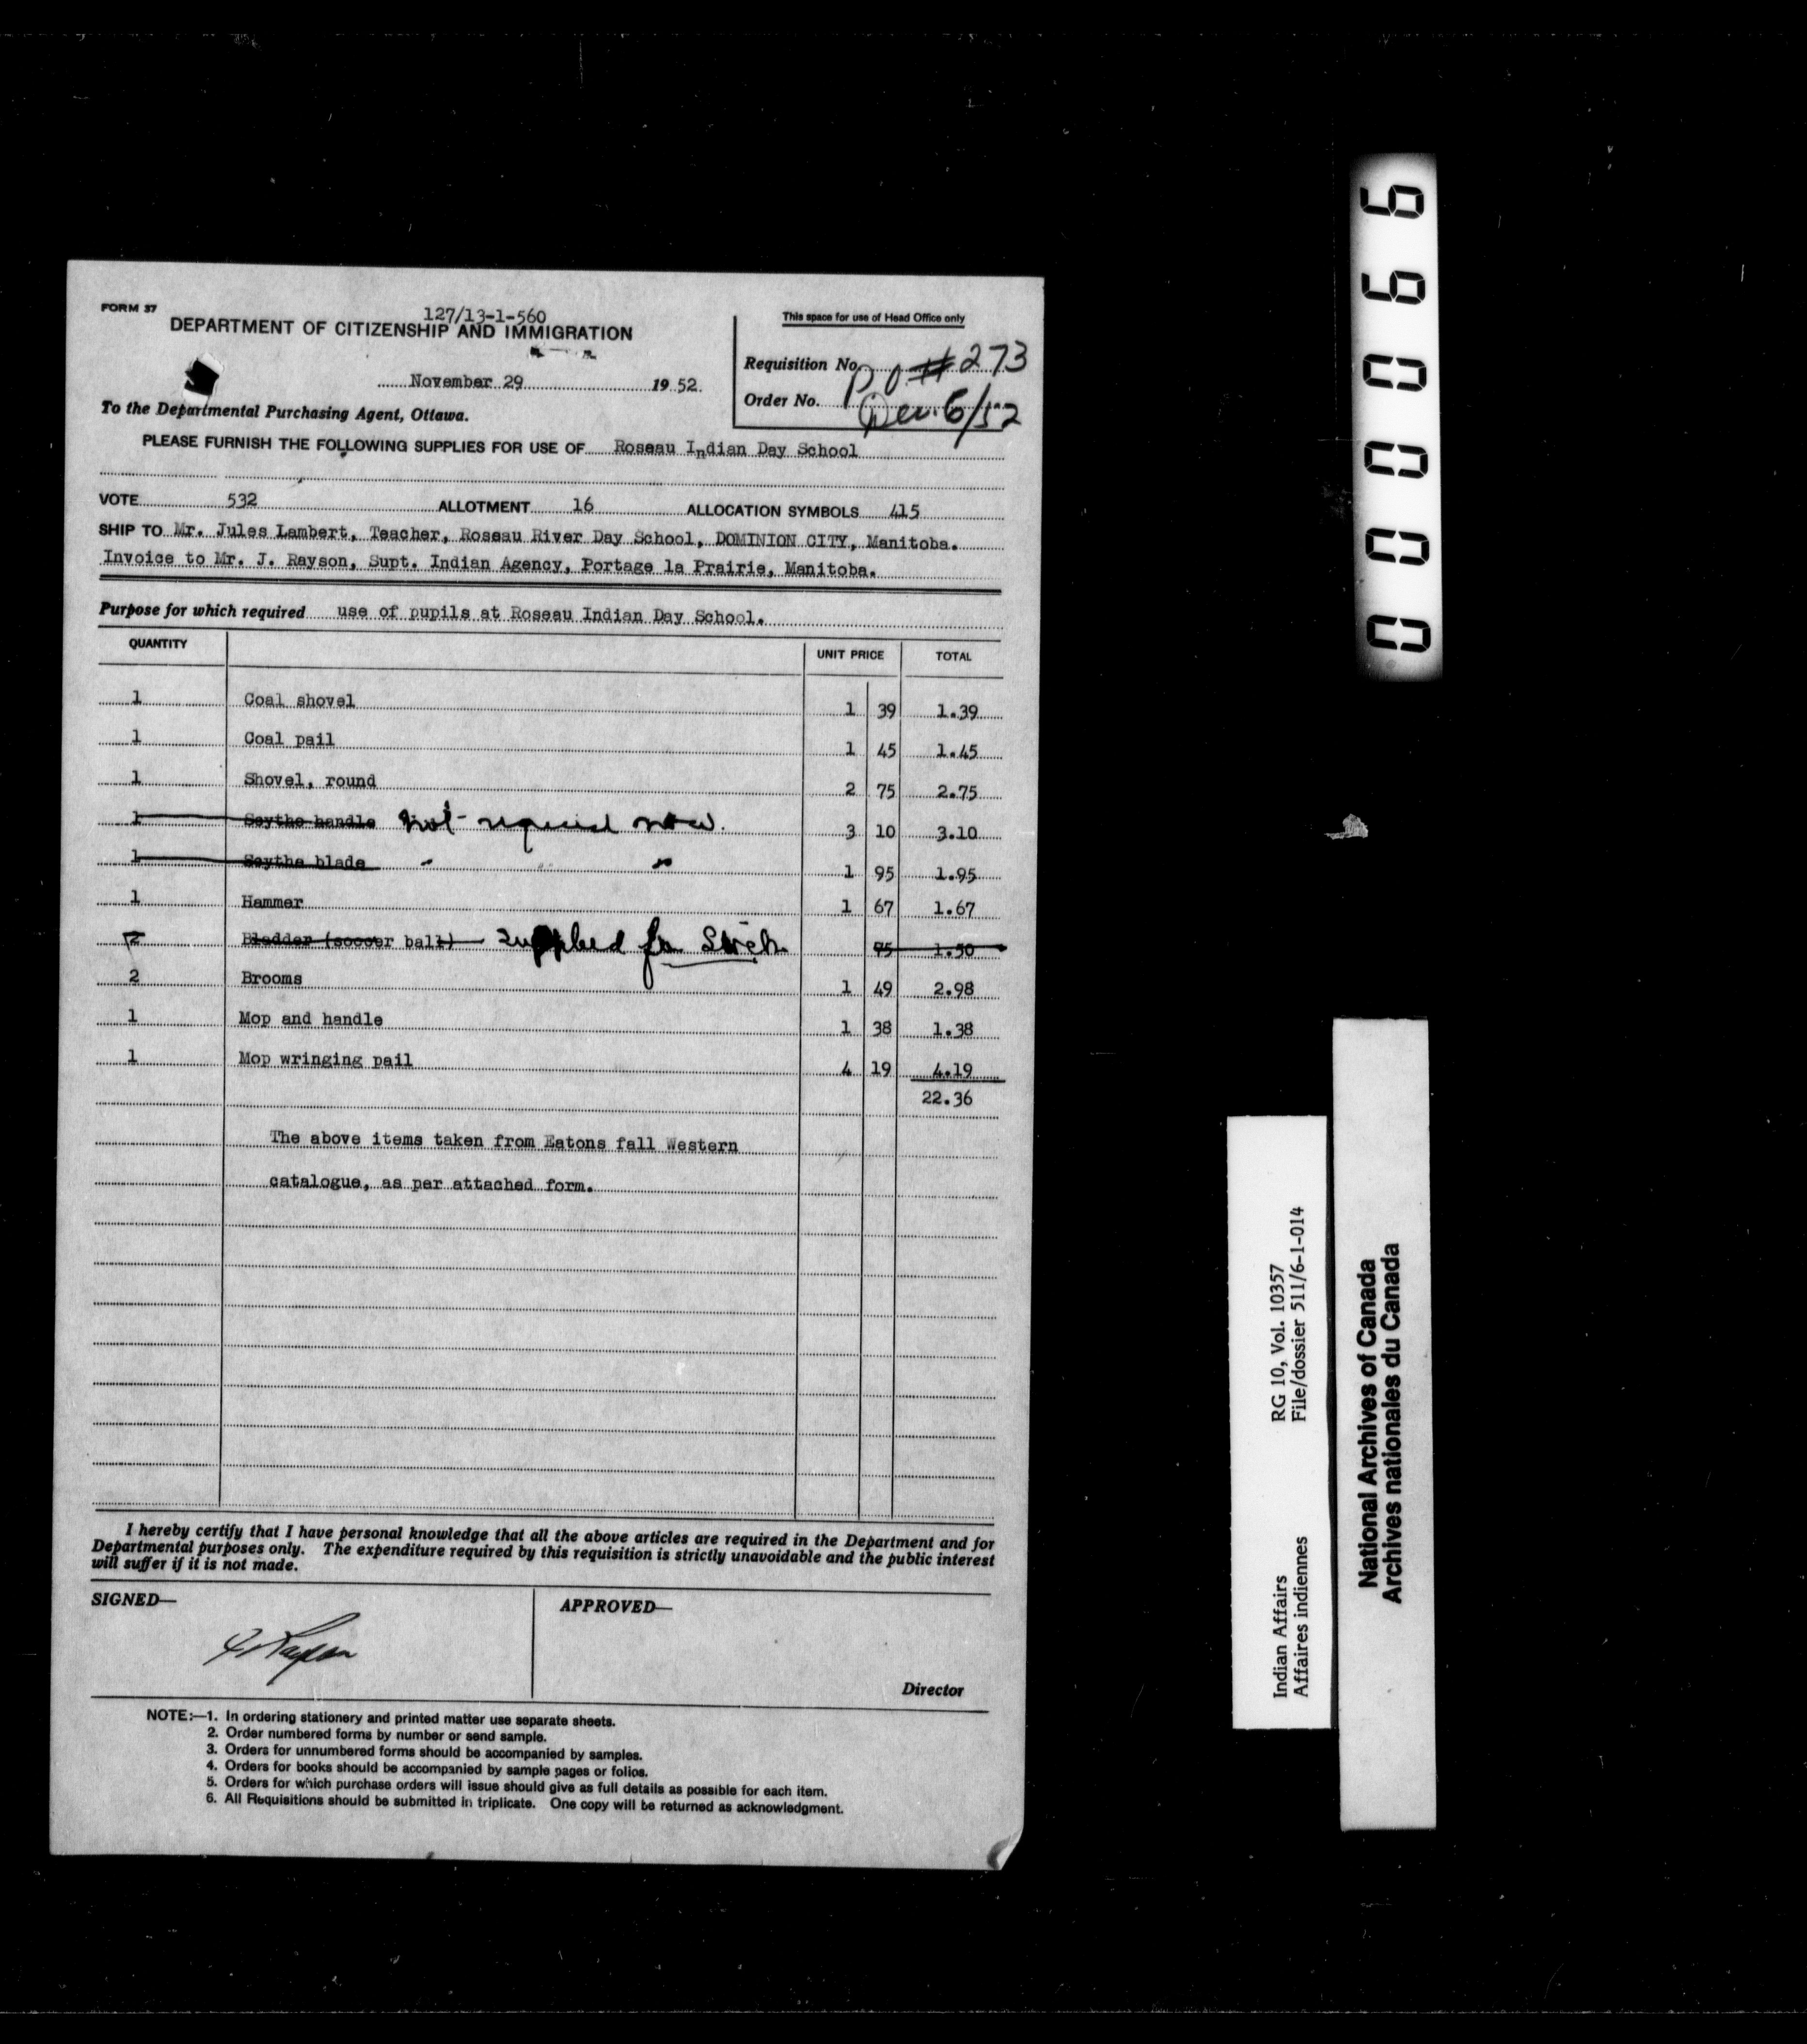 FORM 37
127/13-1-560
DEPARTMENT OF CITIZENSHIP AND IMMIGRATION
November 29 19 52.
To the Departmental Purchasing Agent, Ottawa.
This space for use of Head Office only
Requisition No. P O # 273
Order No. Dec. 6/52
PLEASE FURNISH THE FOLLOWING SUPPLIES FOR USE OF Roseau Indian Day School
VOTE 532 ALLOTMENT 16 ALLOCATION SYMBOLS 415
SHIP TO Mr. Jules Lambert, Teacher, Roseau River Day School, DOMINION CITY, Manitoba.
Invoice to Mr. J. Rayson, Supt. Indian Agency, Portage la Prairie, Manitoba.
Purpose for which required use of pupils at Roseau Indian Day School.
QUANTITY UNIT PRICE TOTAL
1 Coal shovel 1 39 1.39
1 Coal pail 1 45 1.45
1 Shovel, round 2 75 2.75
1 Scythe handle Not required now. 3 10 3.10
1 Scythe blade " " " 1 95 1.95
1 Hammer 1 67 1.67
2 Bladder (soccer ball) Supplied fr Stock 75 1.50
2 Brooms 1 49 2.98
1 Mop and handle 1 38 1.38
1 Mop wringing pail 4 19 4.19
22.36
The above items taken from Eatons fall Western
catalogue, as per attached form.
I hereby certify that I have personal knowledge that all the above articles are required in the Department and for
Departmental purposes only. The expenditure required by this requisition is strictly unavoidable and the public interest
will suffer if it is not made.
SIGNED— APPROVED—
J. Rayson
Director
NOTE:—1. In ordering stationery and printed matter use separate sheets.
2. Order numbered forms by number or send sample.
3. Orders for unnumbered forms should be accompanied by samples.
4. Orders for books should be accompanied by sample pages or folios.
5. Orders for which purchase orders will issue should give as full details as possible for each item.
6. All Requisitions should be submitted in triplicate. One copy will be returned as acknowledgment.
000066
Indian Affairs RG 10, Vol. 10357
Affaires indiennes File/dossier 511/6-1-014
National Archives of Canada
Archives nationales du Canada